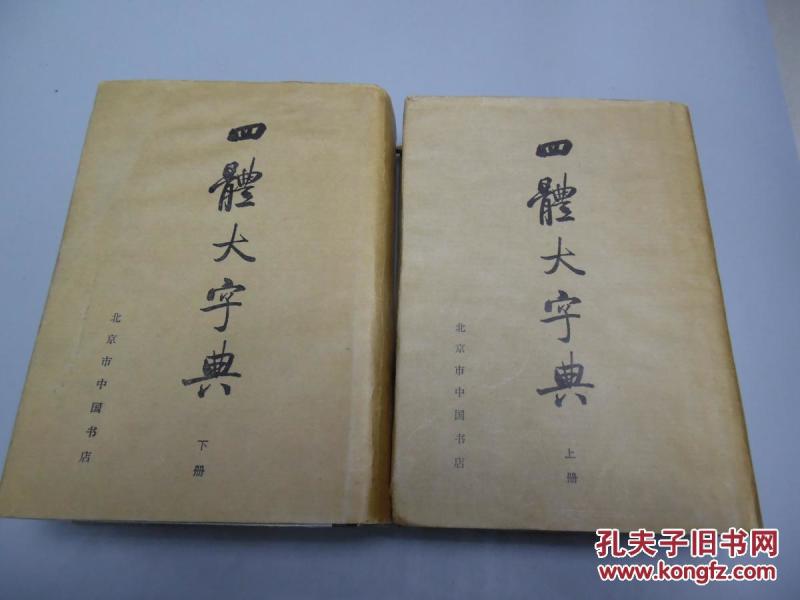 四體大字典
下册
北京市中国书店
四體大字典
上册
北京市中国书店
孔夫子旧书网
www.kongfz.com